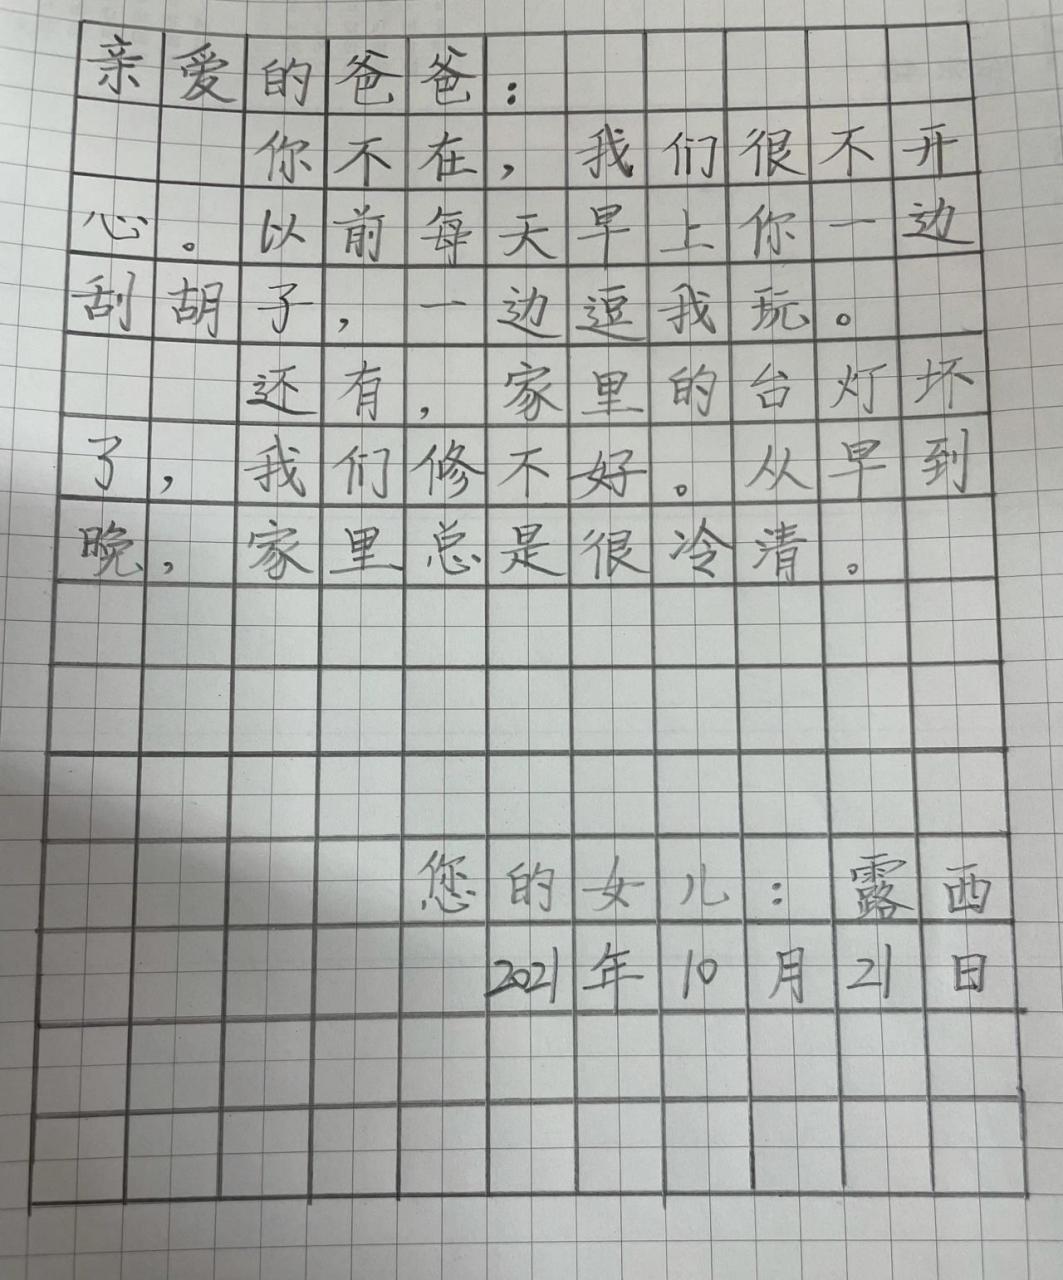 亲爱的爸爸：
你不在，我们很不开
心。以前每天早上你一边
刮胡子，一边逗我玩。
还有，家里的台灯坏
了，我们修不好。从早到
晚，家里总是很冷清。
您的女儿：露西
2021年10月21日